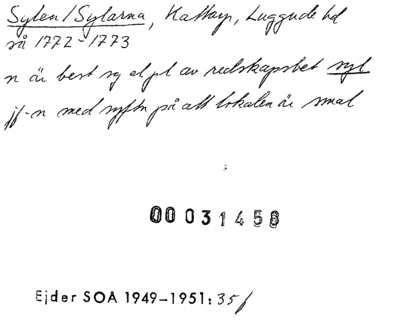 Sylen/Sylarna, Kattarp, Luggude hd
så 1772-1773
n är best sg el pl av redskapsbet syl
jf-n med syftn på att lokalen är smal
00031458
Ejder SOA 1949-1951: 35 f